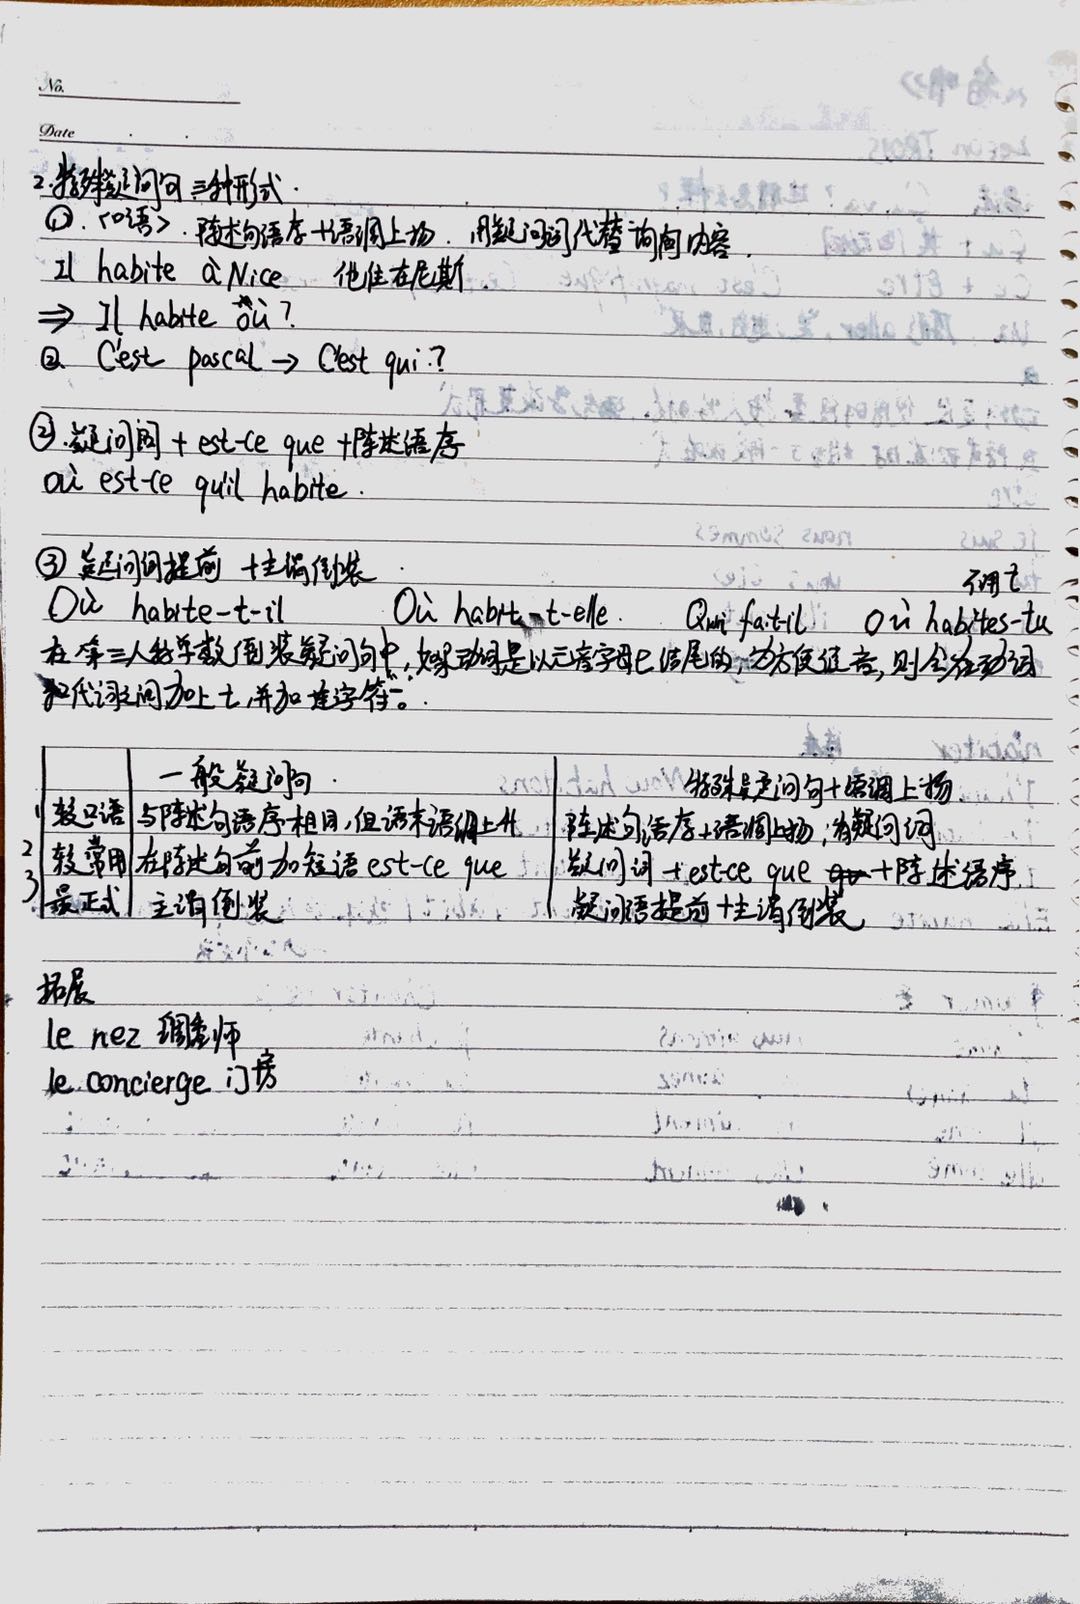 No.
Date
2.特殊疑问句 三种形式.
①.<口语>.陈述句语序+语调上扬.用疑问词代替询问内容.
Il habite à Nice 他住在尼斯.
⇒ Il habite où?
② C'est pascal → C'est qui?
②.疑问词 + est-ce que +陈述语序
où est-ce qu'il habite.
③ 疑问词提前 +主谓倒装
不用t
Où habite-t-il Où habite-t-elle. Qui fait-il Où habites-tu
在第三人称单数倒装疑问句中,如果动词是以元音字母e结尾的,为方便连音,则会在动词
和代词之间加上t,并加连字符"-"。
一般疑问句. 特殊疑问句+语调上扬
1 较口语 与陈述句语序相同,但语末语调上升 陈述句语序+语调上扬,有疑问词
2 较常用 在陈述句前加短语est-ce que 疑问词+est-ce que +陈述语序.
3 最正式 主谓倒装 疑问语提前+主谓倒装
拓展
le nez 调香师
le concierge 门房